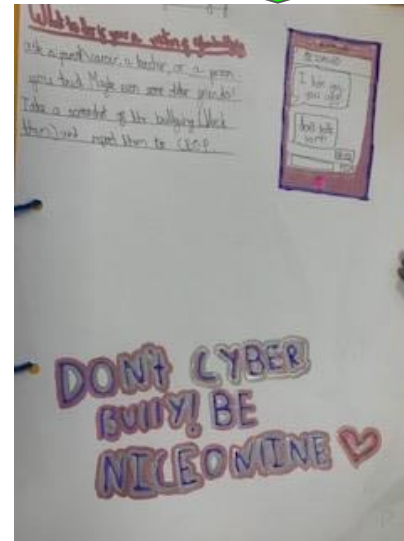 What to do if you're a victim of cyberbullying
ask a parent/carer, a teacher, or a person
you trust. Maybe even some other friends!
Take a screenshot of the bullying (block
them) and report them to CEOP.
I hate you
you ugly
don't talk
to me
DON'T CYBER
BULLY! BE
NICE ONLINE